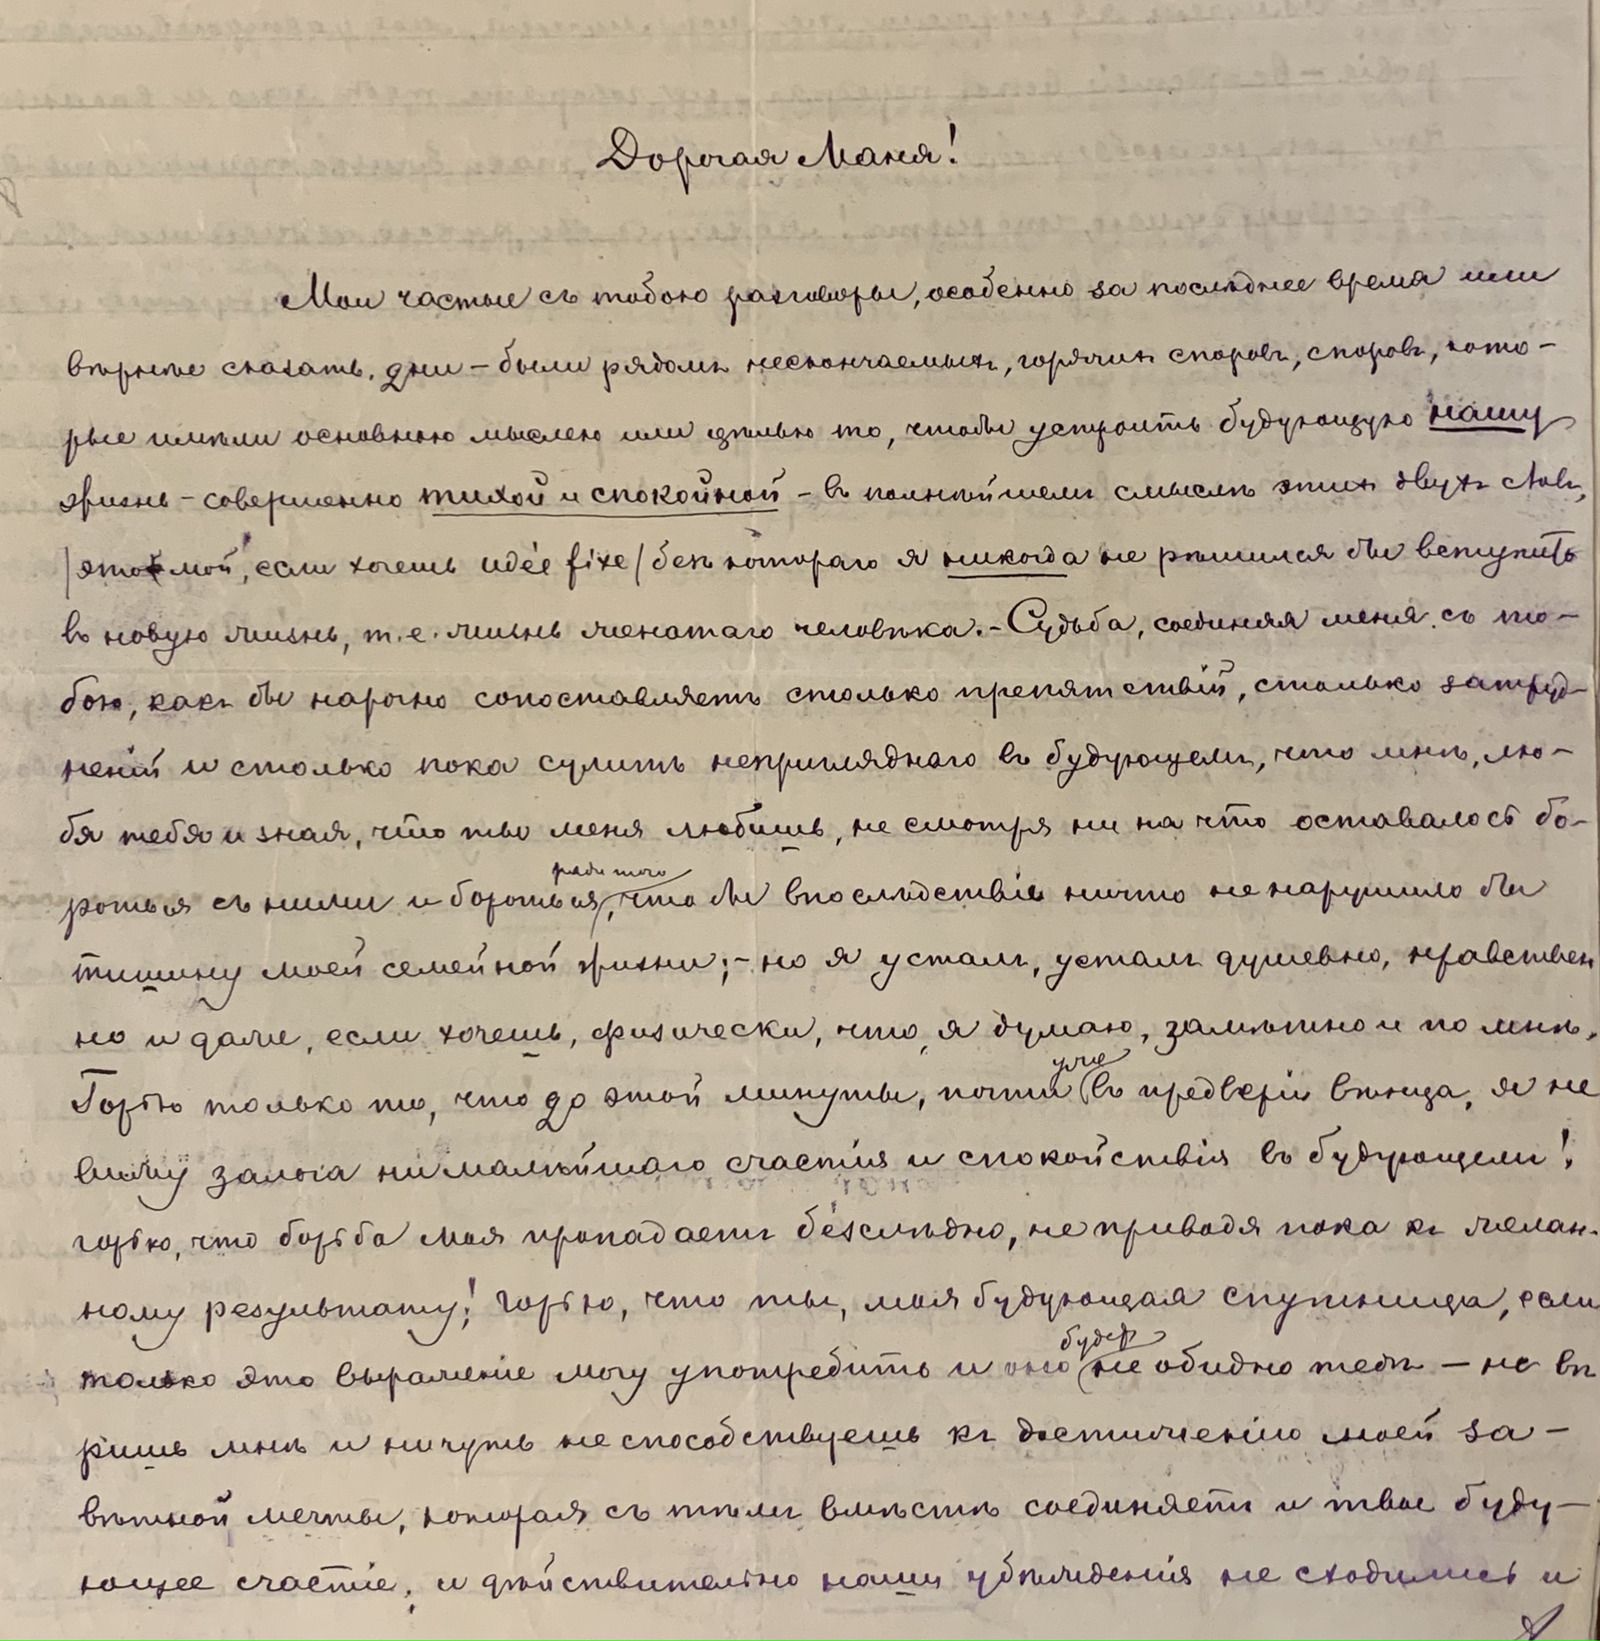 Дорогая Маня!
Мои частые съ тобою разговоры, особенно за послѣднее время или
вѣрнѣе сказать, дни – были рядомъ нескончаемыхъ, горячихъ споровъ, споровъ, кото-
рые имѣли основною мыслею или цѣлью то, чтобы устроить будующую нашу
жизнь – совершенно тихой и спокойной – въ полнѣйшемъ смыслѣ этихъ двухъ словъ,
/это мой, если хочешь idée fixe/ безъ котораго я никогда не рѣшился бы вступить
въ новую жизнь, т.е. жизнь женатаго человѣка. – Судьба, соединяя меня съ то-
бою, какъ бы нарочно сопоставляетъ столько препятствій, столько затруд-
неній и столько пока сулитъ непригляднаго въ будующемъ, что мнѣ, лю-
бя тебя и зная, что ты меня любишь, не смотря ни на что оставалось бо-
роться съ ними и бороться ради того, что бы впослѣдствіе ничто не нарушило бы
тишину моей семейной жизни; – но я усталъ, усталъ душевно, нравствен
но и даже, если хочешь, физически, что, я думаю, замѣтно и по мнѣ.
Горько только то, что до этой минуты, почти уже въ предверіи вѣнца, я не
вижу залога ни малѣйшаго счастія и спокойствія въ будующемъ!
горько, что борьба моя пропадаетъ безслѣдно, не приводя пока къ желан-
ному результату! горько, что ты, моя будующая спутница, если
только это выраженіе могу употребить и оно будетъ не обидно тебѣ – не вѣ
ришь мнѣ и ничуть не способствуешь къ достиженію моей за-
вѣтной мечты, которая съ тѣмъ вмѣстѣ соединяетъ и твое буду-
ющее счастіе, и дѣйствительно наши убѣжденія не сходились и